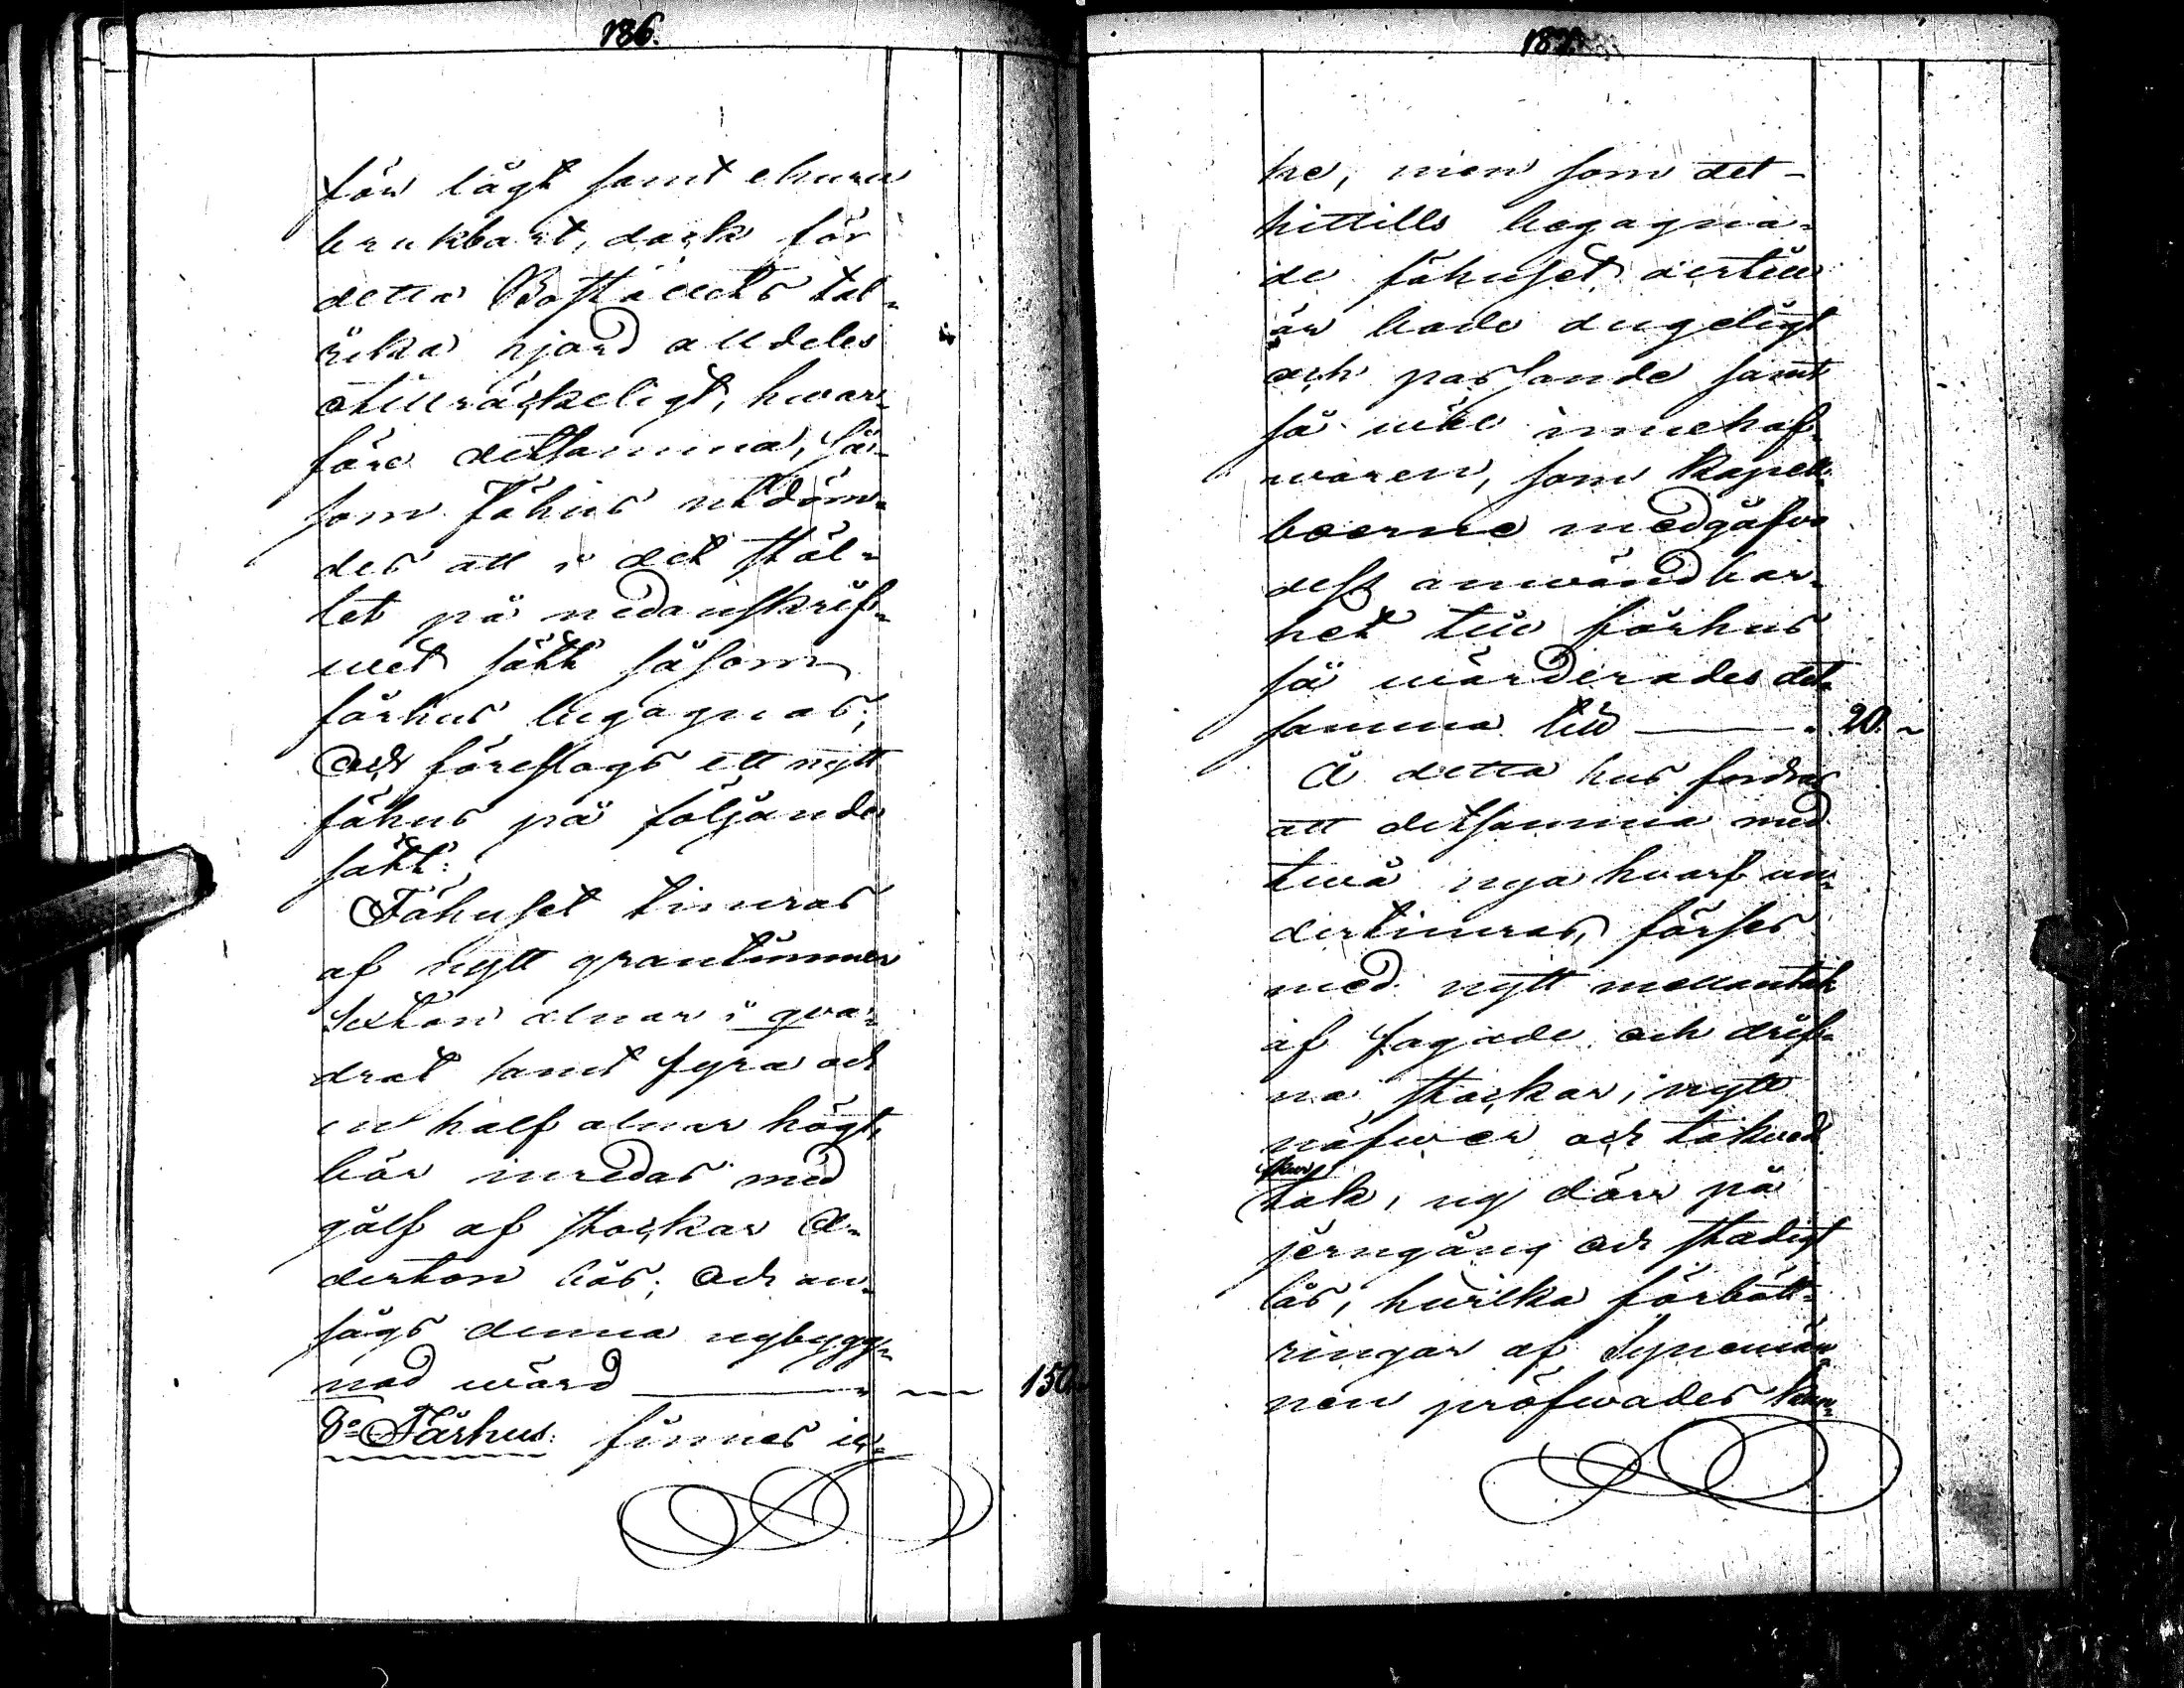 186.
för lågt samt ehuru
brukbart, dock för
detta Boställets tal-
rika hjord alldeles
otillräckeligt, hwar-
före detsamma, så-
som Fähus utdöm-
des att i det stäl-
let på nedanskrif-
wet sätt såsom
fårhus begagnas;
Och föreslogs ett nytt
fähus på följande
sätt:
Fähuset timras
af nytt grantimmer
sexton alnar i qva-
drat samt fyra och
en half alnar högt,
bör inredas med
golf af stockar A-
derton bås; Och an-
sågs denna nybygg-
nad wärd 150
8o Fårhus finnes ic-
187.
ke, men som det
hittills begagna-
de fähuset dertill
är både dugeligt
och passande samt
så wäl innehaf-
waren, som Kapell-
boerne medgåfwo
dess anwändbar-
het till fårhus
så wärderades det-
samma till 20.
Å detta hus fordras
att detsamma med
twå nya hwarf un-
dertimras, förses
med nytt mellantak
af sågade och dref-
na stockar, nytt
näfwer och takwed
tak, ny dörr på
jerngång och stadigt
lås, hwilka förbätt-
ringar af Synemän-
nen pröfwades kun-